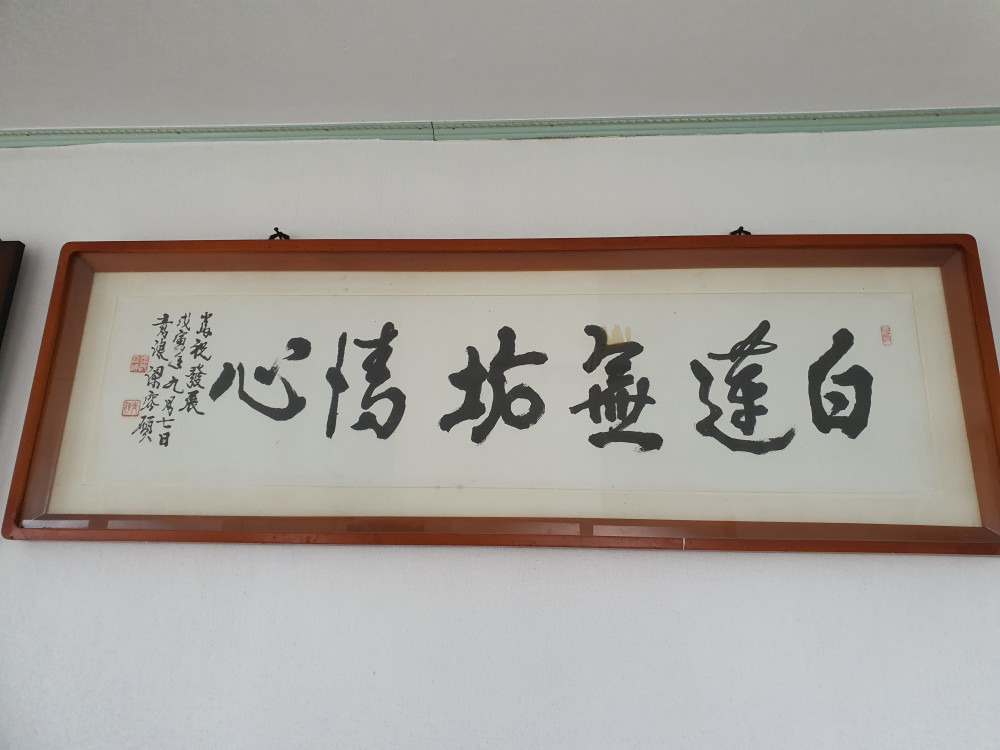 白蓮無垢清心
祝發展
戊寅年九月七日
浪 梁